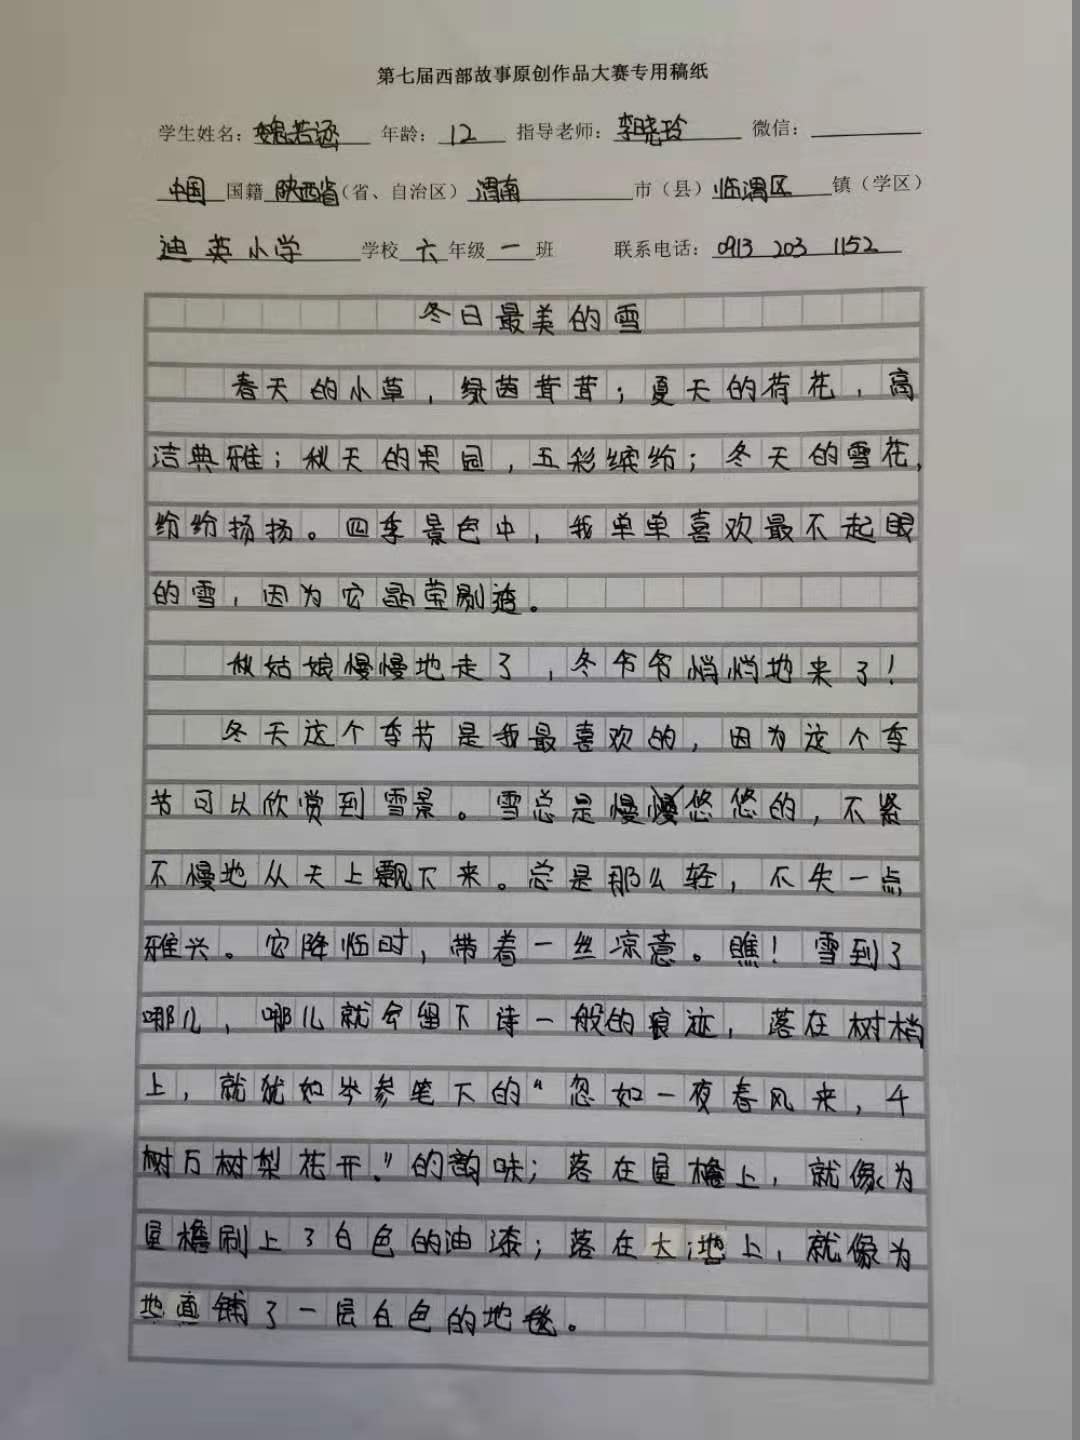 第七届西部故事原创作品大赛专用稿纸
学生姓名：魏若涵 年龄：12 指导老师：李晓玲 微信：
中国 国籍 陕西省（省、自治区） 渭南 市（县） 临渭区 镇（学区）
迪英小学 学校 六 年级 一 班 联系电话：0913 203 1152
冬日最美的雪
春天的小草，绿茵茸茸；夏天的荷花，高
洁典雅；秋天的果园，五彩缤纷；冬天的雪花，
纷纷扬扬。四季景色中，我单单喜欢最不起眼
的雪，因为它晶莹剔透。
秋姑娘慢慢地走了，冬爷爷悄悄地来了！
冬天这个季节是我最喜欢的，因为这个季
节可以欣赏到雪景。雪总是慢悠悠的，不紧
不慢地从天上飘下来。总是那么轻，不失一点
雅兴。它降临时，带着一丝凉意。瞧！雪到了
哪儿，哪儿就会留下诗一般的痕迹，落在树梢
上，就犹如岑参笔下的“忽如一夜春风来，千
树万树梨花开。”的韵味；落在屋檐上，就像为
屋檐刷上了白色的油漆；落在大地上，就像为
地面铺了一层白色的地毯。